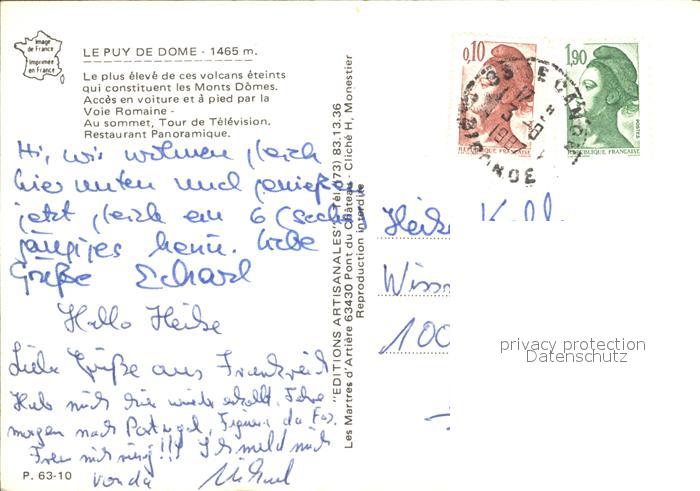 Image
de France
Imprimée
en France
LE PUY DE DOME - 1465 m.
Le plus élevé de ces volcans éteints
qui constituent les Monts Dômes.
Accès en voiture et à pied par la
Voie Romaine -
Au sommet, Tour de Télévision.
Restaurant Panoramique.
Hi, wir wohnen gleich
hier unten und genießen
jetzt gleich ein 6 (sechs)
gängiges Menü. Liebe
Grüße Eckard
Hallo Heike
Liebe Grüße aus Frankreich
Hab mich hier wieder erholt. Fahre
morgen nach Portugal, Figueira da Foz.
Freu mich riesig!!! Ich meld mich
von da Michael
P. 63-10
"EDITIONS ARTISANALES" Tél. (73) 83.13.36
Les Martres d'Artière 63430 Pont du Château - Cliché H. Monestier
Reproduction interdite
0,10
RÉPUBLIQUE FRANÇAISE
1,90
POSTES
RÉPUBLIQUE FRANÇAISE
Heike
100
privacy protection
Datenschutz